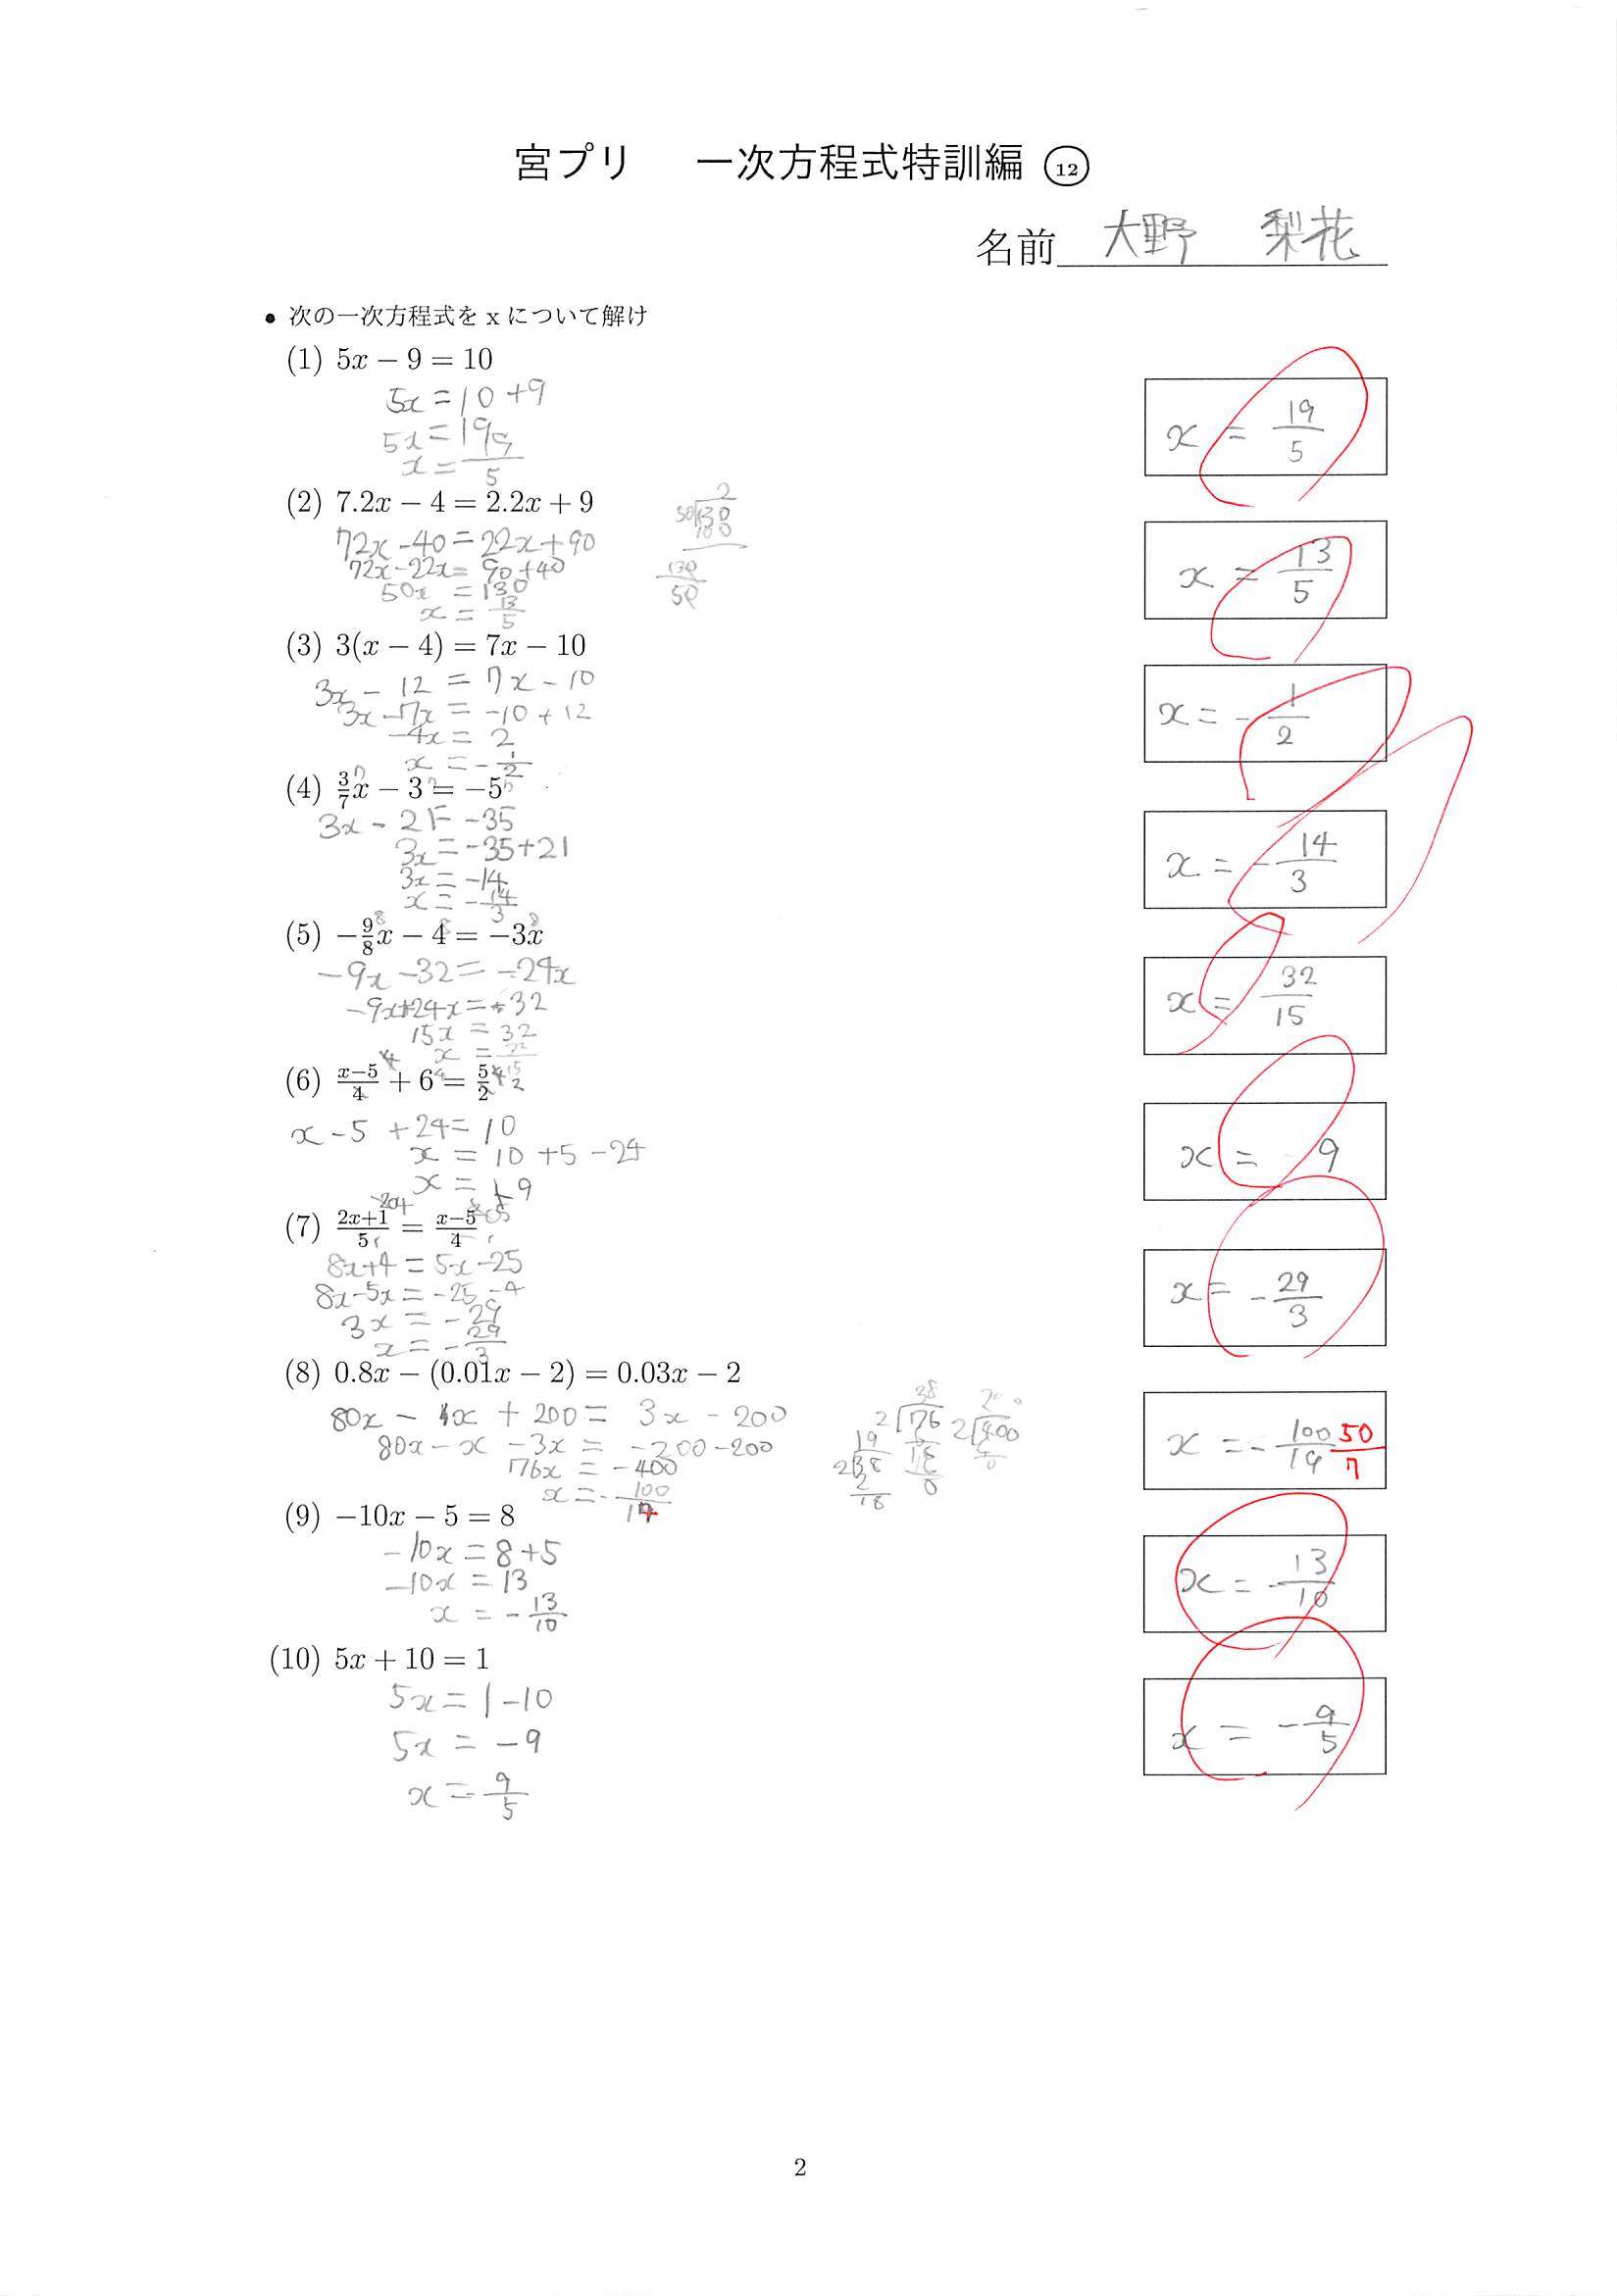 宮プリ 一次方程式特訓編 ⑫
名前 大野 梨花
• 次の一次方程式を x について解け
(1) 5x − 9 = 10
5x = 10 + 9
5x = 19
x = 19/5
x = 19/5
(2) 7.2x − 4 = 2.2x + 9
72x - 40 = 22x + 90
72x - 22x = 90 + 40
50x = 130
x = 13/5
2
50 130
100
130/50
x = 13/5
(3) 3(x − 4) = 7x − 10
3x - 12 = 7x - 10
3x - 7x = -10 + 12
-4x = 2
x = -1/2
x = -1/2
(4) 3/7x − 3 = −5
3x - 21 = -35
3x = -35 + 21
3x = -14
x = -14/3
x = -14/3
(5) −9/8x − 4 = −3x
-9x - 32 = -24x
-9x + 24x = 32
15x = 32
x = 32/15
x = 32/15
(6) x−5/4 + 6 = 5/2
x - 5 + 24 = 10
x = 10 + 5 - 24
x = -9
x = 9
(7) 2x+1/5 = x−5/4
8x + 4 = 5x - 25
8x - 5x = -25 - 4
3x = -29
x = -29/3
x = -29/3
(8) 0.8x − (0.01x − 2) = 0.03x − 2
80x - x + 200 = 3x - 200
80x - x - 3x = -200 - 200
76x = -400
x = -100/19
38
2 76
6
16
16
0
19
2 38
2
18
200
2 400
4
0
x = -100/19 50/7
(9) −10x − 5 = 8
-10x = 8 + 5
-10x = 13
x = -13/10
x = -13/10
(10) 5x + 10 = 1
5x = 1 - 10
5x = -9
x = 9/5
x = -9/5
2